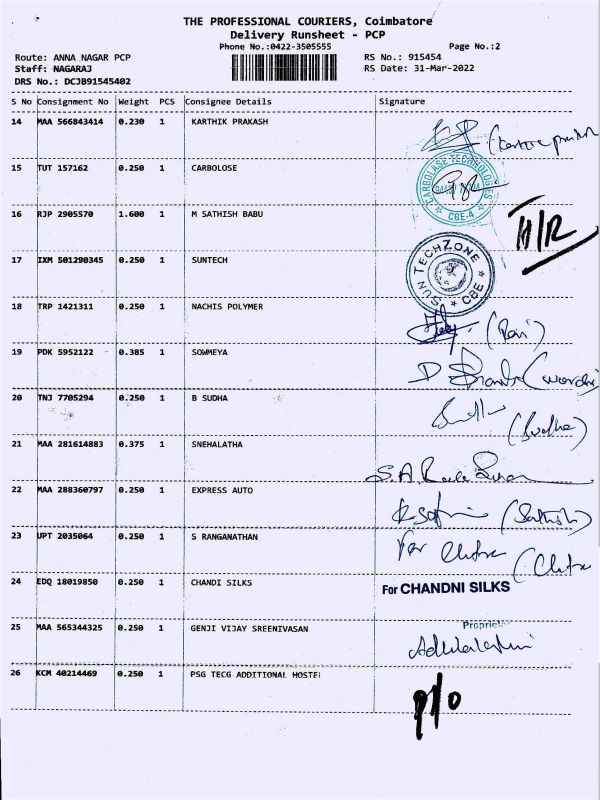 THE PROFESSIONAL COURIERS, Coimbatore
Delivery Runsheet - PCP
Phone No.:0422-3505555 Page No.:2
Route: ANNA NAGAR PCP RS No.: 915454
Staff: NAGARAJ RS Date: 31-Mar-2022
DRS No.: DCJB91545402
S No Consignment No Weight PCS Consignee Details Signature
14 MAA 566843414 0.230 1 KARTHIK PRAKASH
15 TUT 157162 0.250 1 CARBOLOSE
CARBOLASE TECHNOLOGIES
CBE-4
16 RJP 2905570 1.600 1 M SATHISH BABU
17 IXM 501290345 0.250 1 SUNTECH
SUN TECHZONE
CBE
18 TRP 1421311 0.250 1 NACHIS POLYMER
(Ravi)
19 PDK 5952122 0.385 1 SOWMEYA
20 TNJ 7705294 0.250 1 B SUDHA
(Sudha)
21 MAA 281614883 0.375 1 SNEHALATHA
22 MAA 288360797 0.250 1 EXPRESS AUTO
(Sathish)
23 UPT 2035064 0.250 1 S RANGANATHAN
For Chitra (Chitra
24 EDQ 18019850 0.250 1 CHANDI SILKS For CHANDNI SILKS
25 MAA 565344325 0.250 1 GENJI VIJAY SREENIVASAN
Proprietor
26 KCM 40214469 0.250 1 PSG TECG ADDITIONAL HOSTEL
P/O